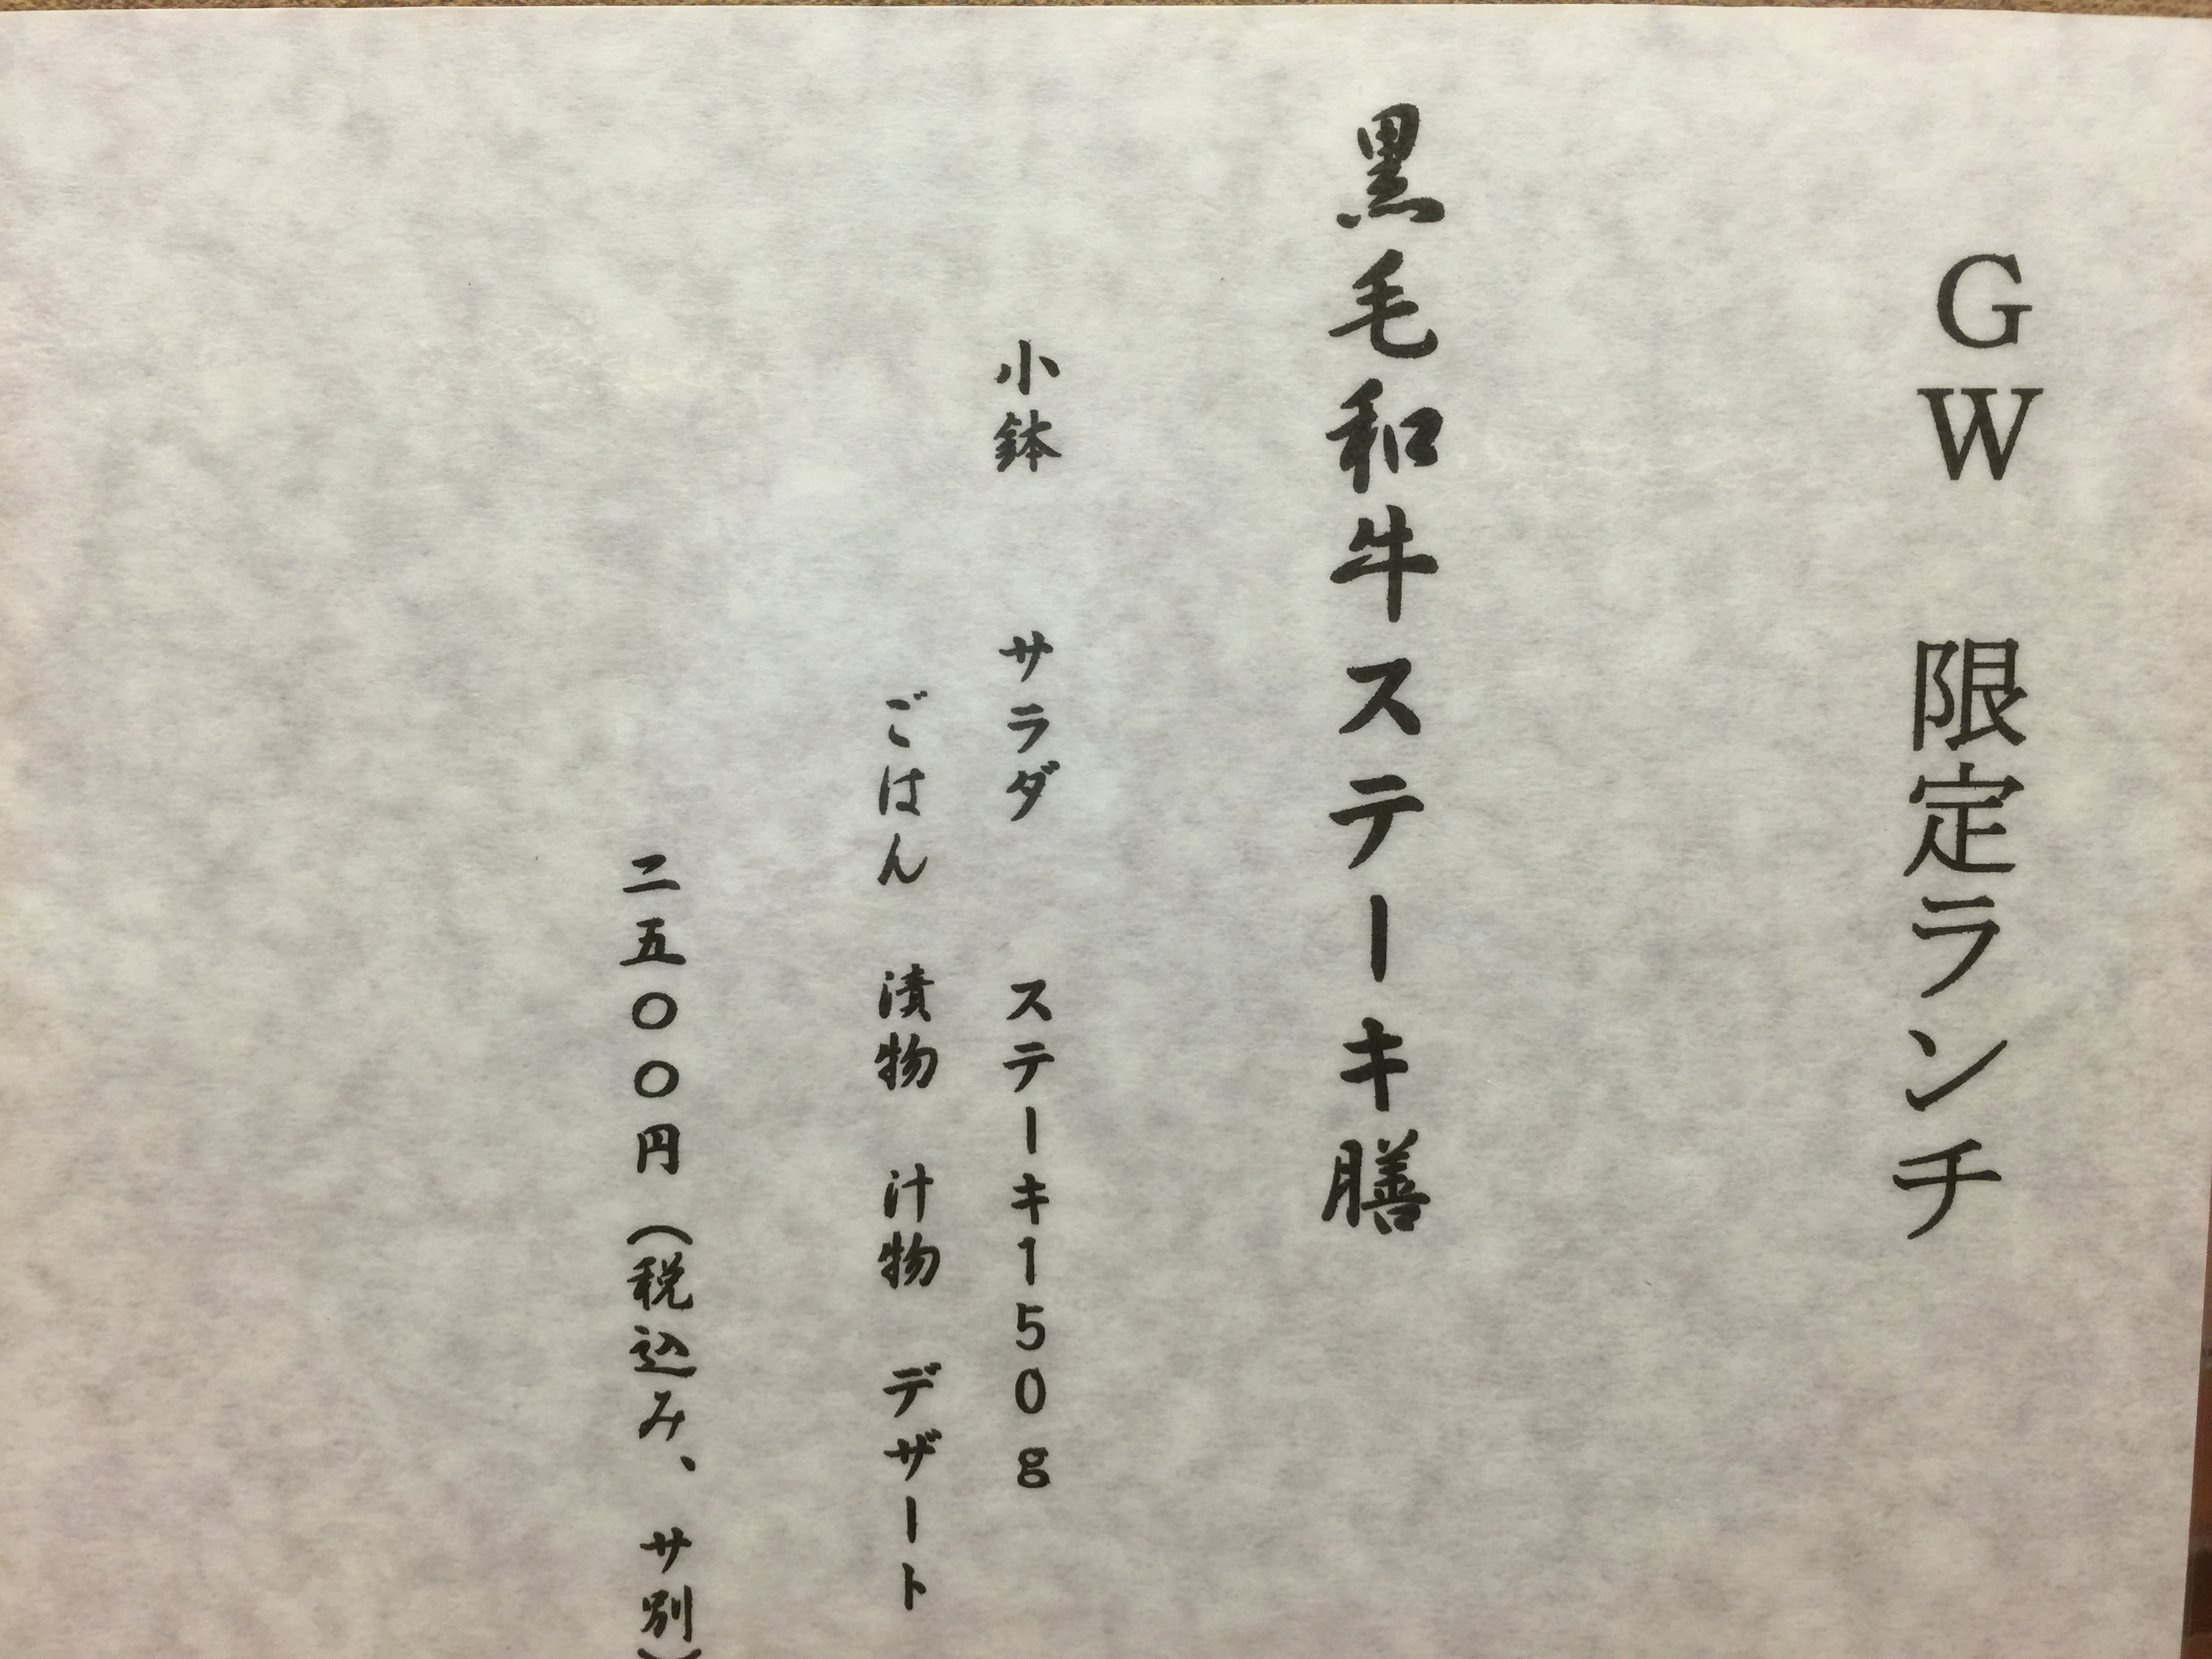 GW　限定ランチ
黒毛和牛ステーキ膳
小鉢　サラダ　ステーキ150g
ごはん　漬物　汁物　デザート
二五〇〇円（税込み、サ別）